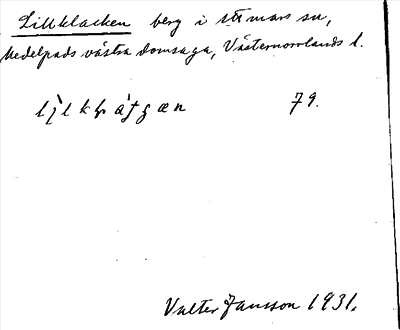 Lillklacken berg i Stt mars sn,
Medelpads västra domsaga, Västernorrlands l.
79.
Valter Jansson 1931.